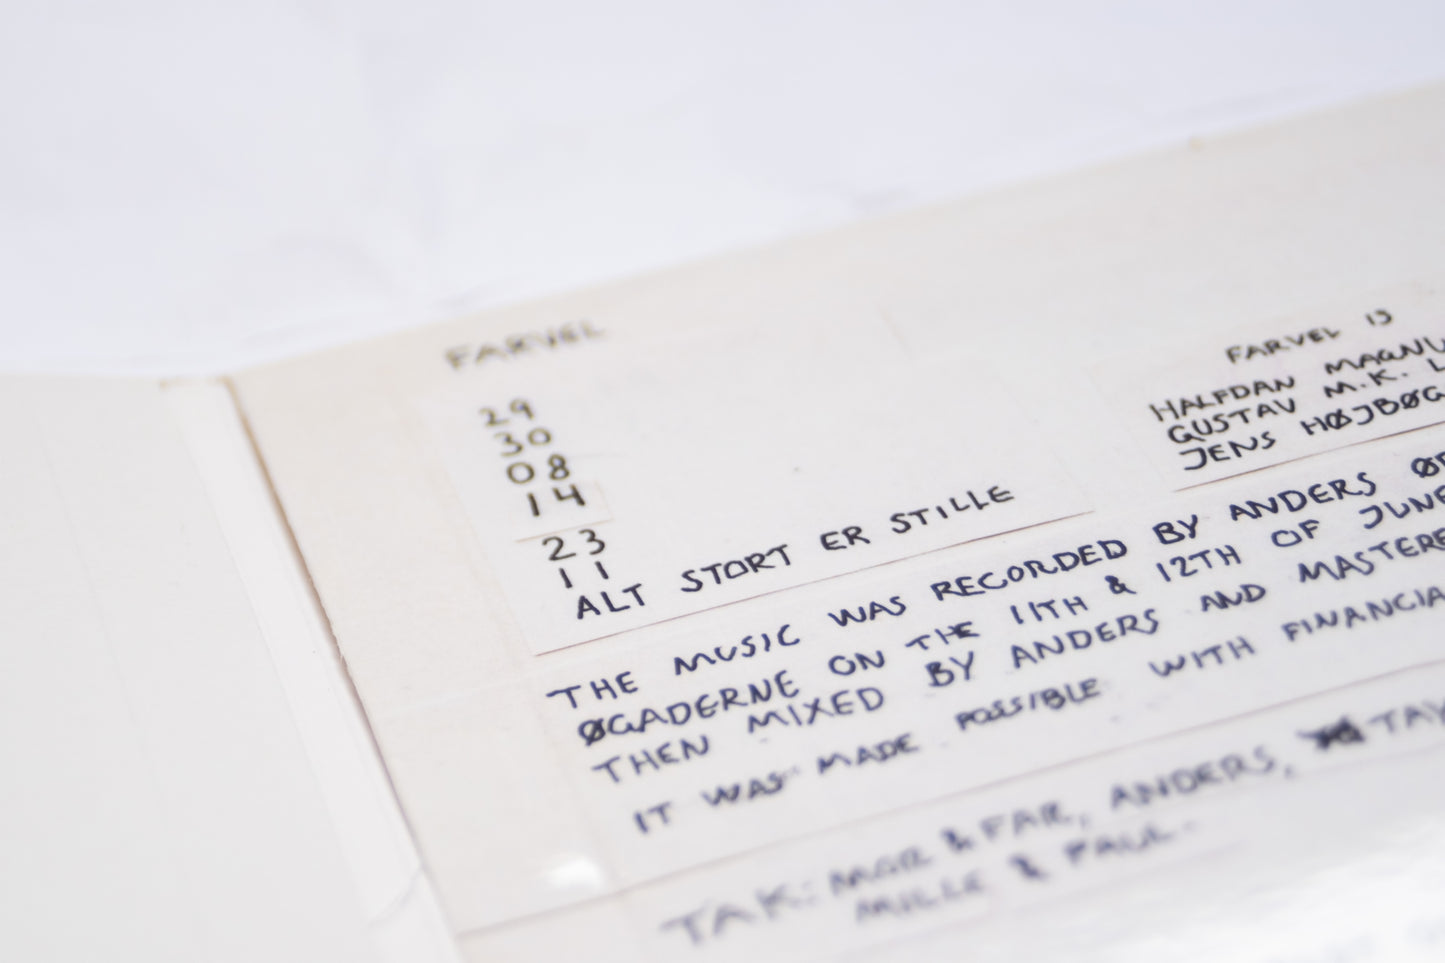 FARVEL
29
30
08
14
23
11
ALT STORT ER STILLE
FARVEL IS
HALFDAN
GUSTAV M.K.
JENS
THE MUSIC WAS RECORDED BY ANDERS
ØGADERNE ON THE 11TH & 12TH OF JUNE
THEN MIXED BY ANDERS AND
IT WAS MADE POSSIBLE WITH
TAK: MOR & FAR, ANDERS,
MILLE & PAUL